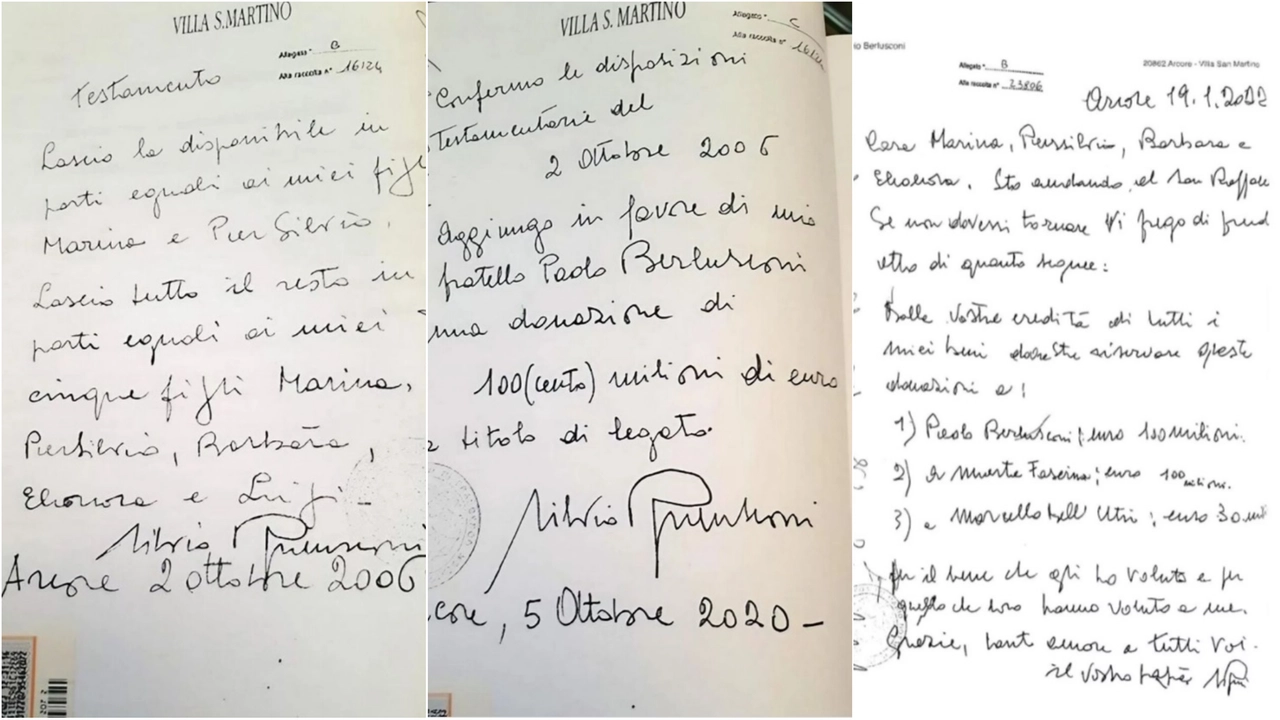 VILLA S. MARTINO
Allegato " B
Alla raccolta n° 16124
Testamento
Lascio la disponibile in
parti eguali ai miei figl
Marina e Pier Silvio.
Lascio tutto il resto in
parti eguali ai miei
cinque figli Marina,
PierSilvio, Barbara,
Eleonora e Luigi_
Silvio Berlusconi
Arcore 2 ottobre 2006
VILLA S. MARTINO
Allegato " C
Alla raccolta n° 16124
Confermo le disposizioni
Testamentarie del
2 Ottobre 2006
Aggiungo in favore di mio
fratello Paolo Berlusconi
una donazione di
100 (cento) milioni di euro
a titolo di legato.
Silvio Berlusconi
core, 5 Ottobre 2020 -
io Berlusconi
20862 Arcore - Villa San Martino
Allegato " B
Alla raccolta n° 23806
Arcore 19.1.2022
Cara Marina, Piersilvio, Barbara e
Eleonora. Sto andando al San Raffaele
Se non dovessi tornare Vi prego di prend
atto di quanto segue:
Dalle Vostre eredità di tutti i
miei beni dovreste riservare queste
donazioni a:
1) Paolo Berlusconi; euro 100 milioni.
2) a Marta Fascina; euro 100 milioni.
3) a Marcello Dell'Utri; euro 30 mil
Per il bene che gli ho voluto e per
quello che loro hanno voluto a me.
Grazie, tanto amore a tutti voi.
il vostro papà